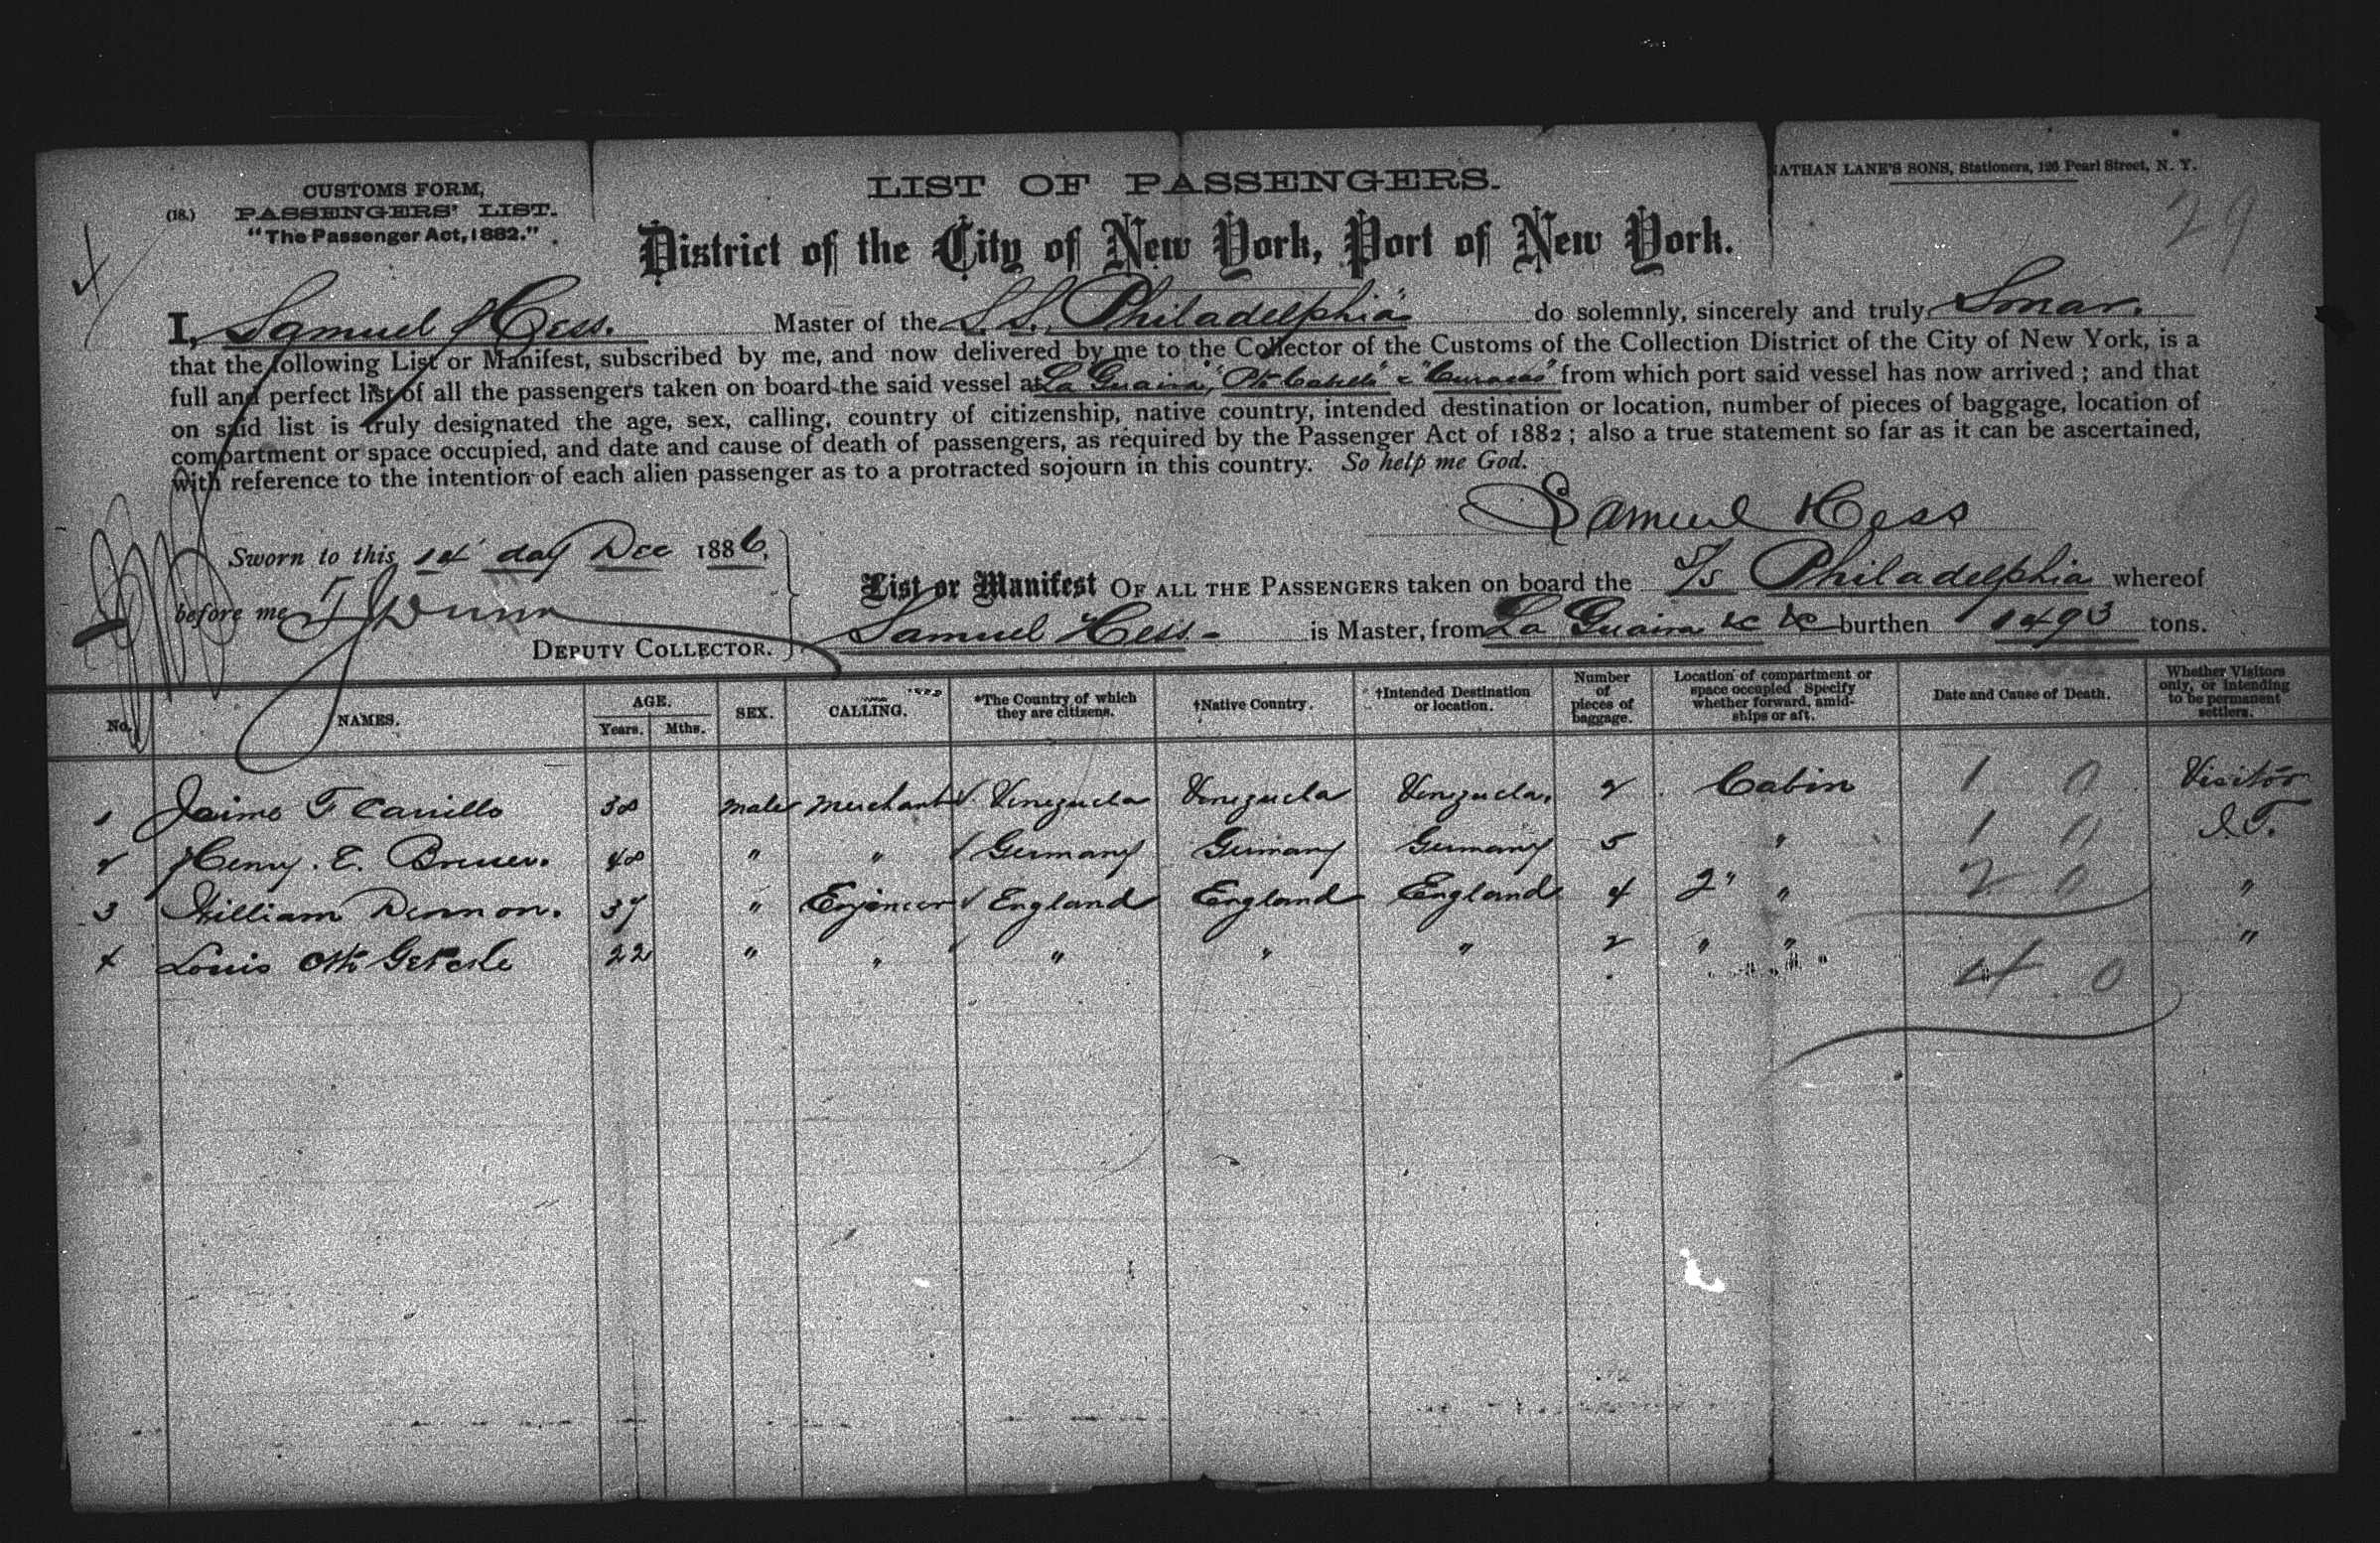 CUSTOMS FORM,
(18.) PASSENGERS' LIST.
"The Passenger Act, 1882."
LIST OF PASSENGERS.
NATHAN LANE'S SONS, Stationers, 126 Pearl Street, N. Y.
29
District of the City of New York, Port of New York.
I, Samuel Hess. Master of the S.S. Philadelphia do solemnly, sincerely and truly
that the following List or Manifest, subscribed by me, and now delivered by me to the Collector of the Customs of the Collection District of the City of New York, is a
full and perfect list of all the passengers taken on board the said vessel at La Guaira, Pto Cabello & Curacao from which port said vessel has now arrived; and that
on said list is truly designated the age, sex, calling, country of citizenship, native country, intended destination or location, number of pieces of baggage, location of
compartment or space occupied, and date and cause of death of passengers, as required by the Passenger Act of 1882; also a true statement so far as it can be ascertained,
with reference to the intention of each alien passenger as to a protracted sojourn in this country. So help me God.
Samuel Hess
Sworn to this 14 day Dec 1886,
before me
DEPUTY COLLECTOR.
List or Manifest OF ALL THE PASSENGERS taken on board the S/S Philadelphia whereof
Samuel Hess is Master, from La Guaira &c &c burthen 1493 tons.
No. NAMES. AGE. Years. Mths. SEX. CALLING. *The Country of which they are citizens. †Native Country. †Intended Destination or location. Number of pieces of baggage. Location of compartment or space occupied Specify whether forward, amidships or aft. Date and Cause of Death. Whether Visitors only, or intending to be permanent settlers.
1 Jaime F Carrillo 38 male merchant Venezuela Venezuela Venezuela. 2 Cabin 1 0 Visitor
2 Henry. E. Bruer. 48 " " Germany Germany Germany 5 " 1 0
3 William Dennon. 37 " Engineer England England England 4 2" " 2 0 "
4 Louis Otto 22 " " " " " 2 " " "
4 0